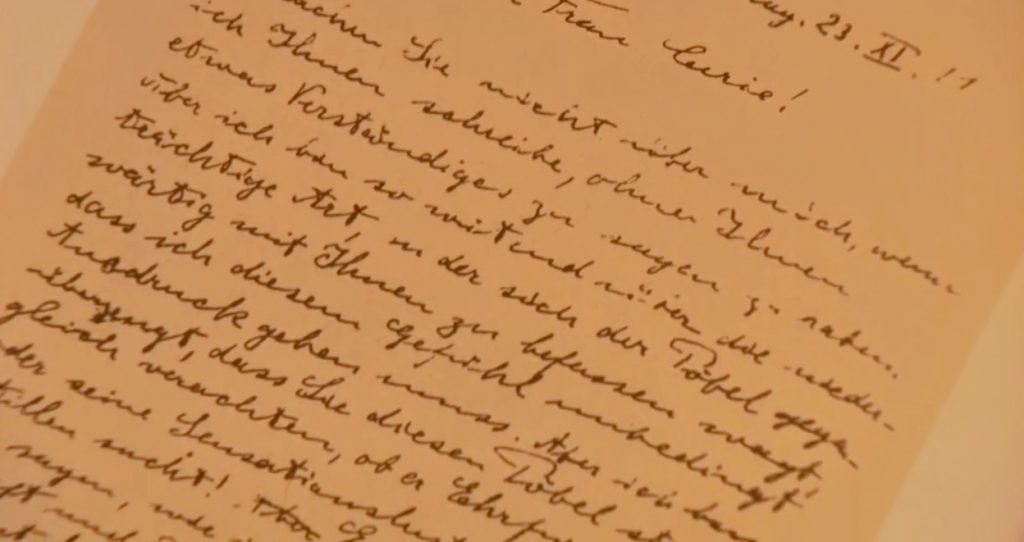 ag. 23. XI. 11
Frau Curie!
achen Sie nicht über mich, wenn
ich Ihnen schreibe, ohne Ihnen
etwas Verständiges zu sagen zu haben.
Aber ich bin so wütend über die nieder-
trächtige Art, in der sich der Pöbel gegen-
wärtig mit Ihnen zu befassen wagt,
dass ich diesem Gefühl unbedingt
Ausdruck geben muss. Aber ich bin
überzeugt, dass Sie diesen Pöbel st
gleich verachten, ob er Ehrfu
der seine Sensationslust
tillen sucht!
sagen, wie